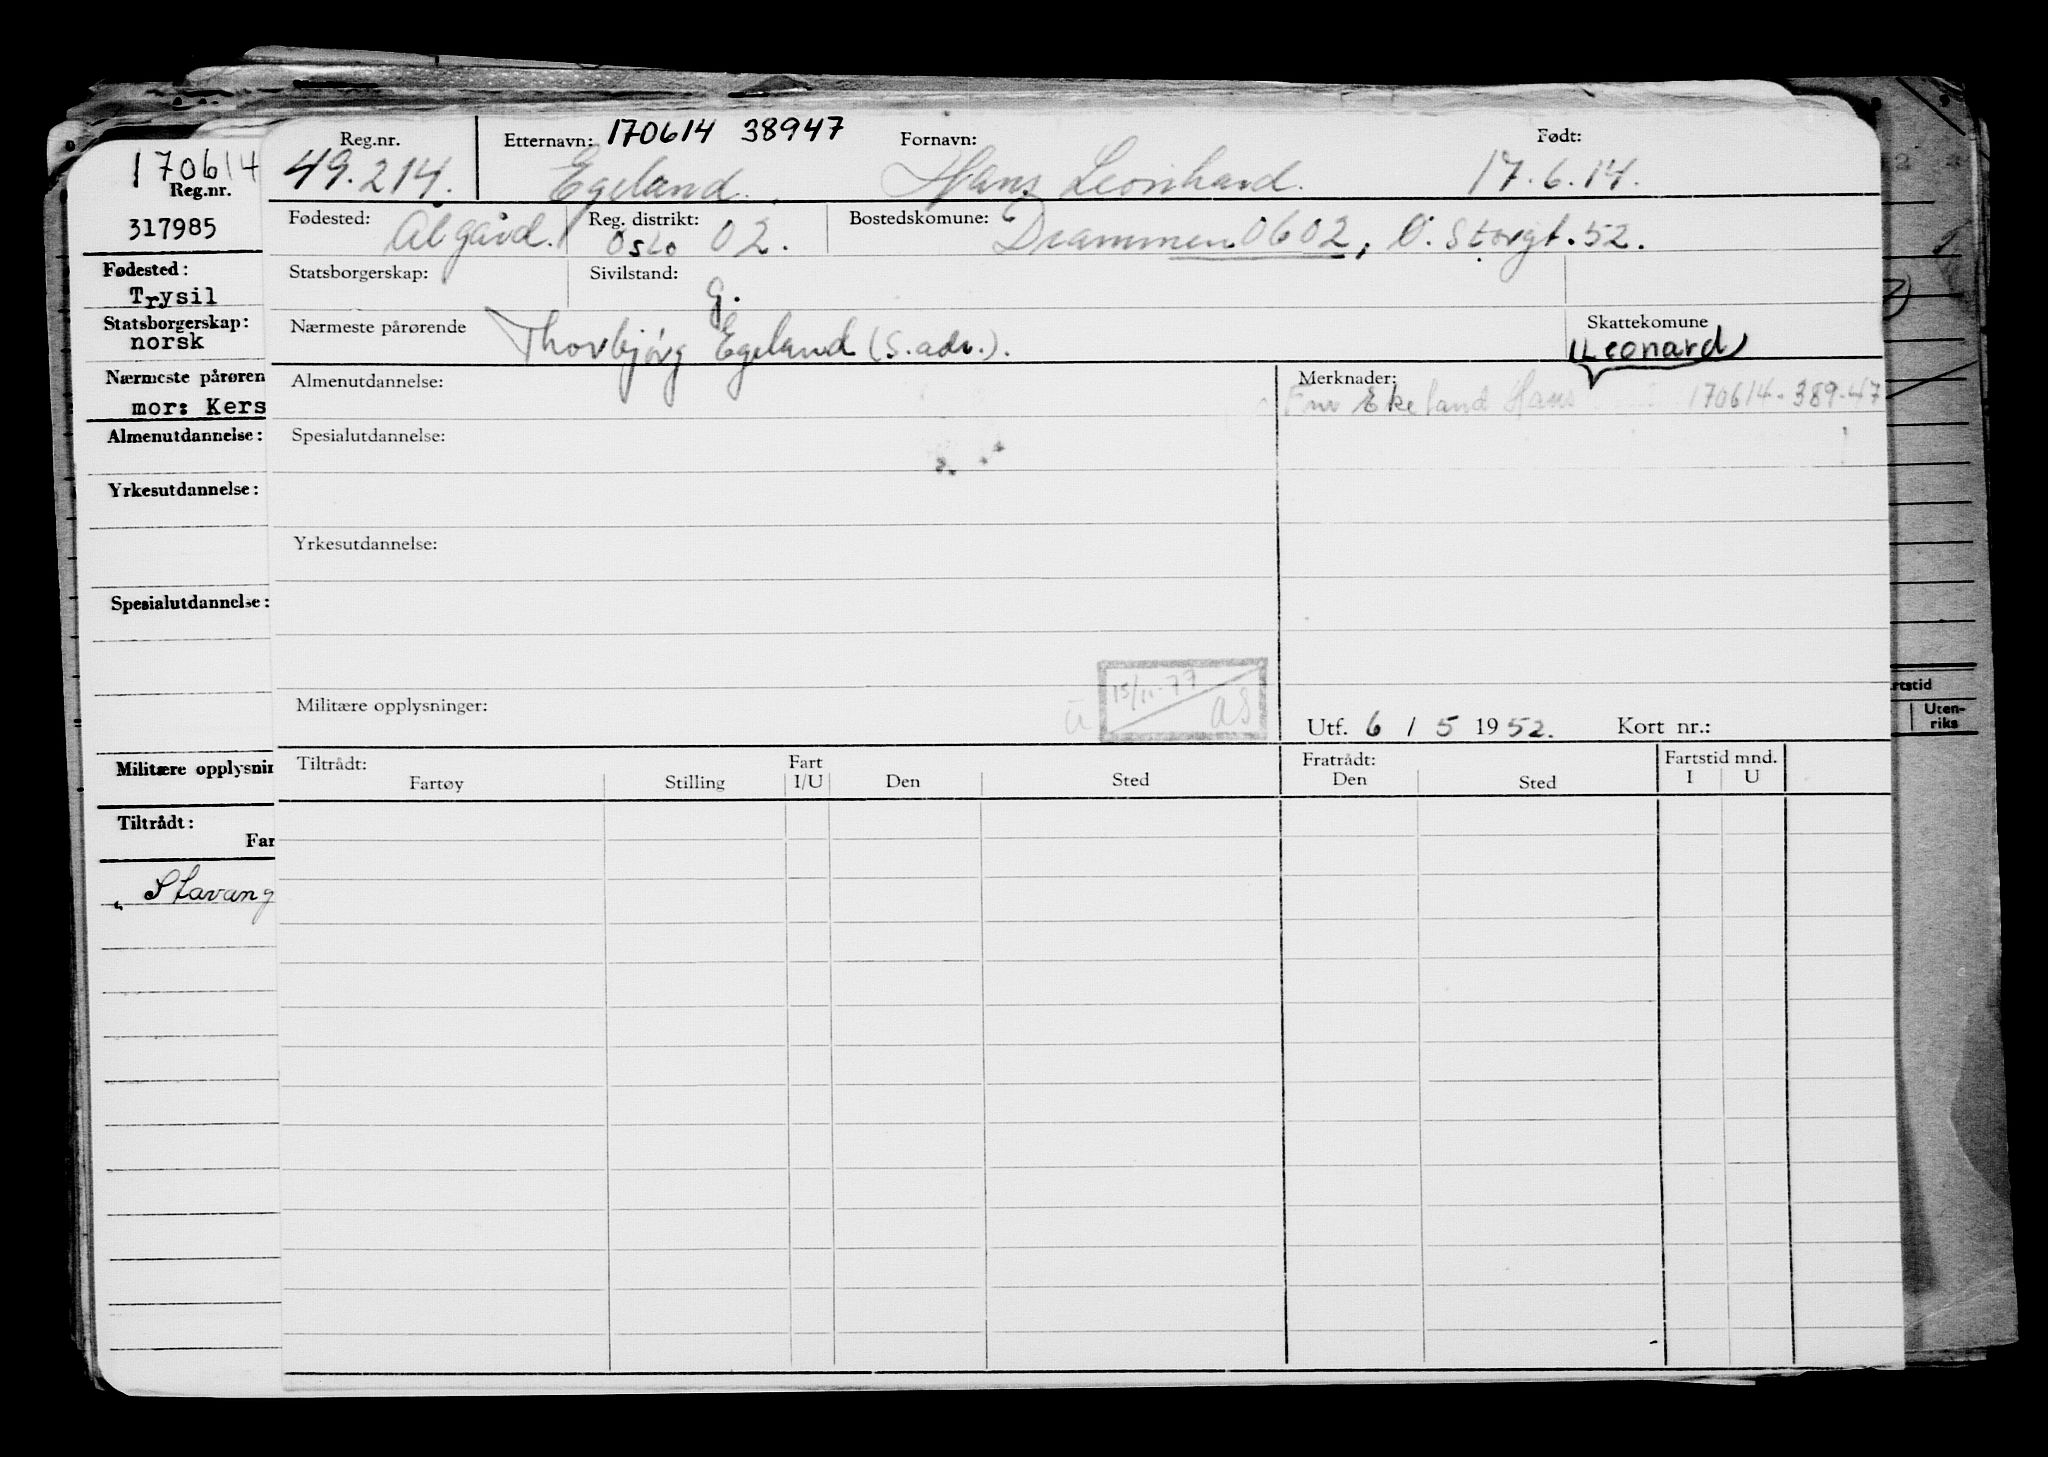 170614
Reg.nr.
317985
Fødested:
Trysil
Statsborgerskap:
norsk
Nærmeste pårøren
mor: Kers
Almenutdannelse:
Yrkesutdannelse:
Spesialutdannelse:
Militære opplysnin
Tiltrådt:
Far
Stavang
Reg.nr. Etternavn: 170614 38947 Fornavn: Født:
49.214. Egeland. Hans Leonhard. 17.6.14.
Fødested: Ålgård. Reg. distrikt: Oslo 02. Bostedskomune: Drammen 0602, Ö. Storgt. 52.
Statsborgerskap: Sivilstand: g.
Nærmeste pårørende Thorbjörg Egeland (s.adr.). Skattekomune
(Leonard)
Almenutdannelse: Merknader:
Ekeland Hans 170614-389-47
Spesialutdannelse:
Yrkesutdannelse:
15/11-77
Militære opplysninger: as Utf. 6 / 5 1952. Kort nr.:
Tiltrådt: Fart Fratrådt: Fartstid mnd.
Fartøy Stilling I/U Den Sted Den Sted I U
rtstid
Uten-
riks